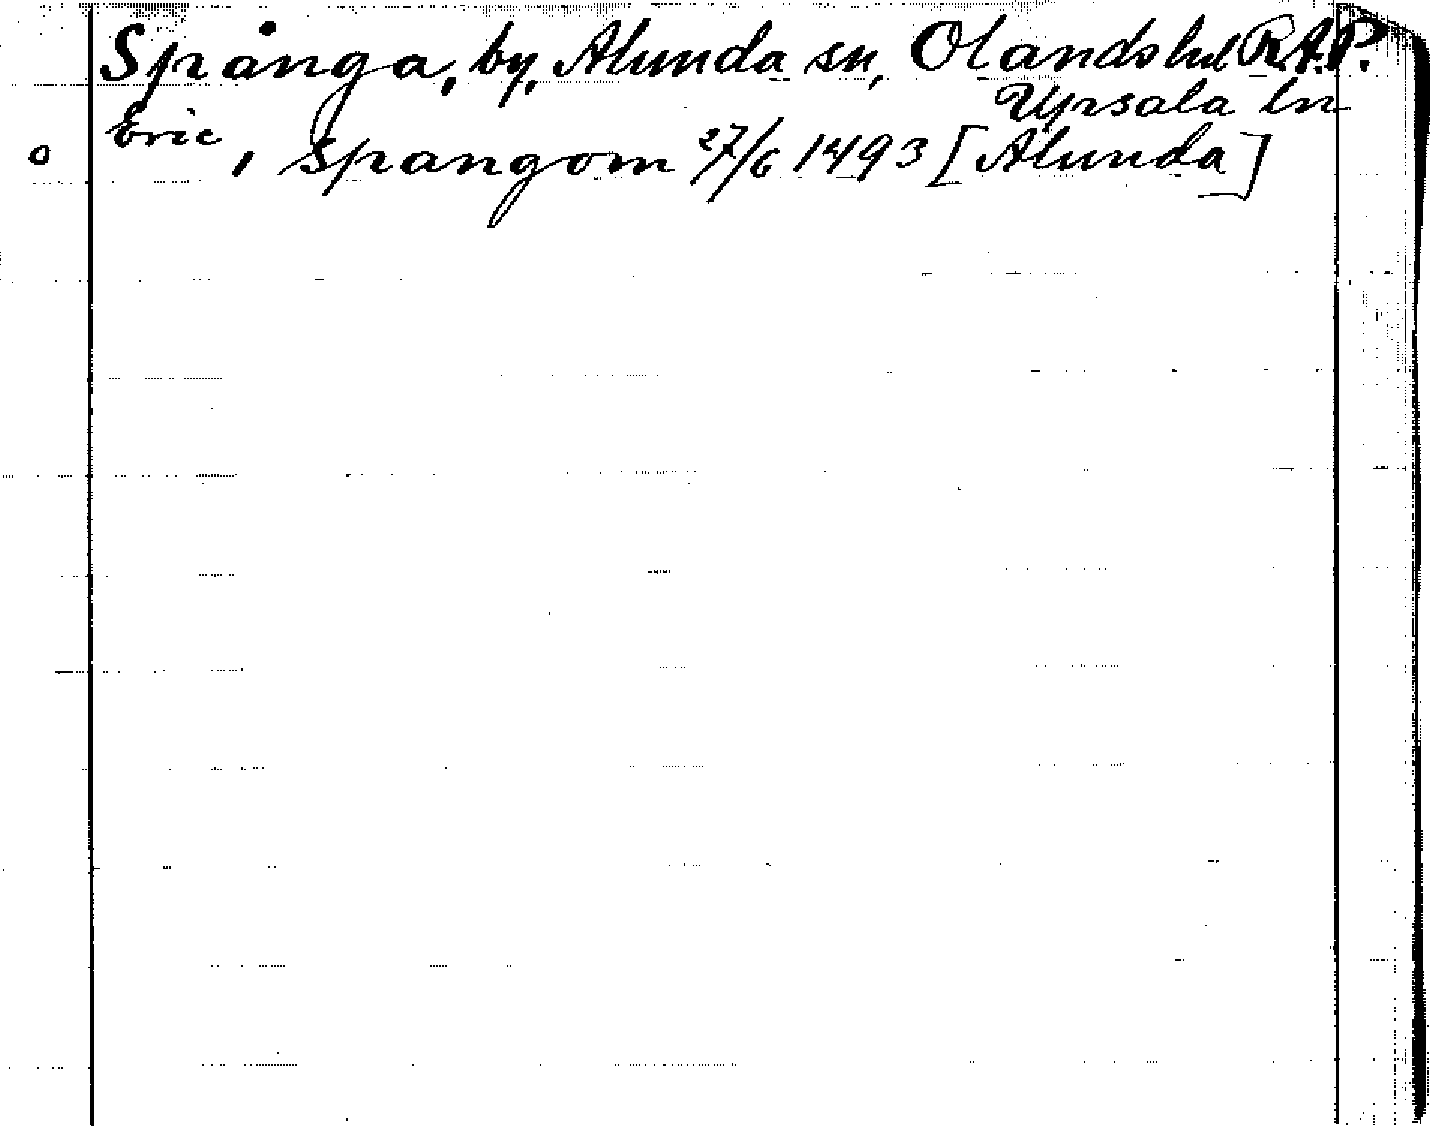 Spånga, by, Alunda sn, Olands hd R.A.P.
Upsala ln
o Eric, i Spangom 27/6 1493 [Alunda]